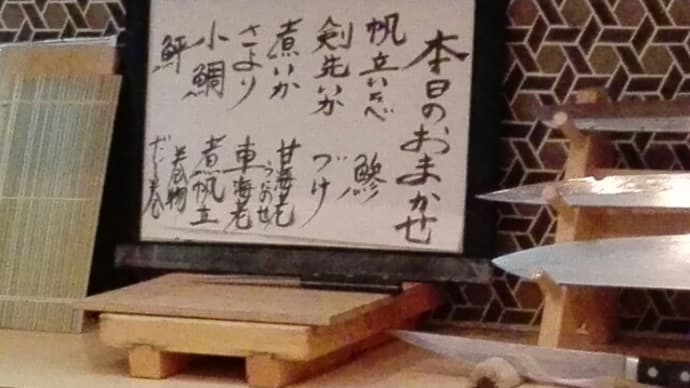 本日のおまかせ
帆立いそべ
鯵
剣先いか
づけ
煮いか
甘海老
うらのせ
さより
車海老
小鯛
煮帆立
巻物
だし巻